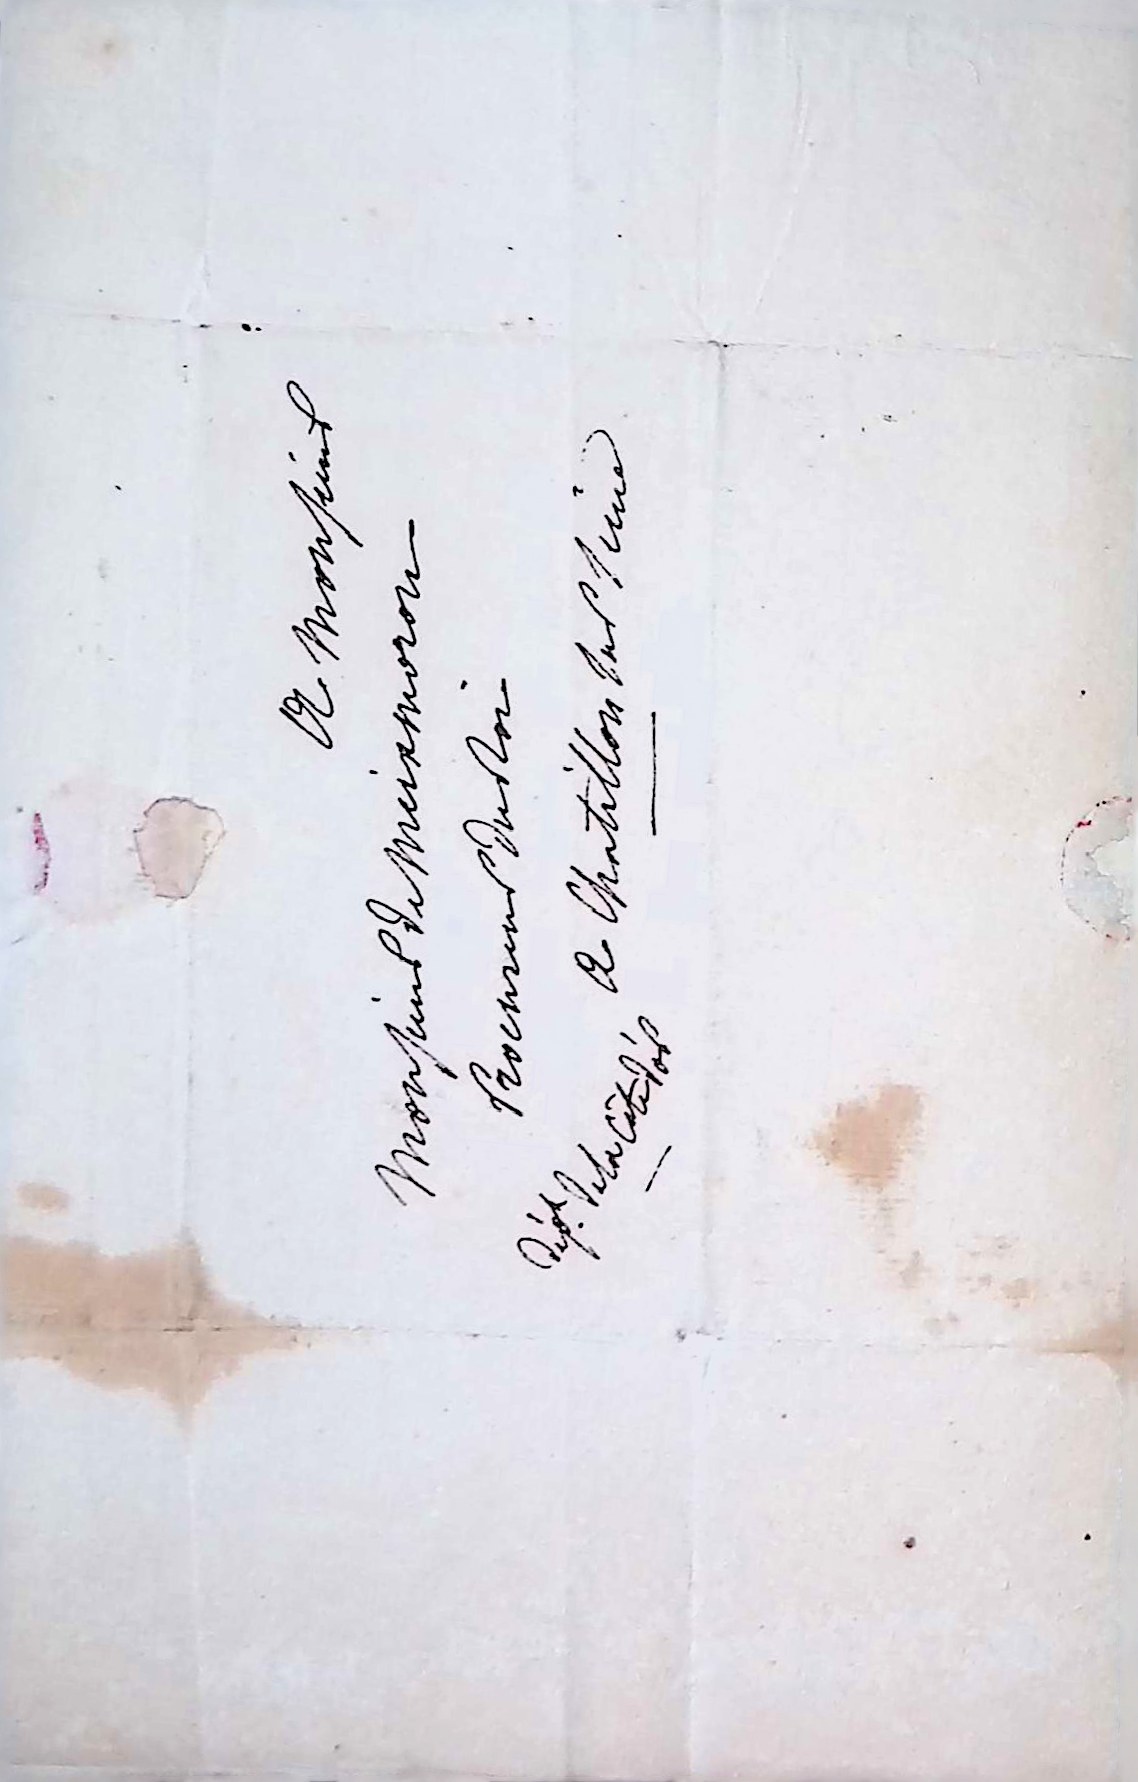 A Monsieur
Monsieur de Mermoron
Procureur du Roi
A Chatillon sur Seine
Dépt. de la Côte d'or